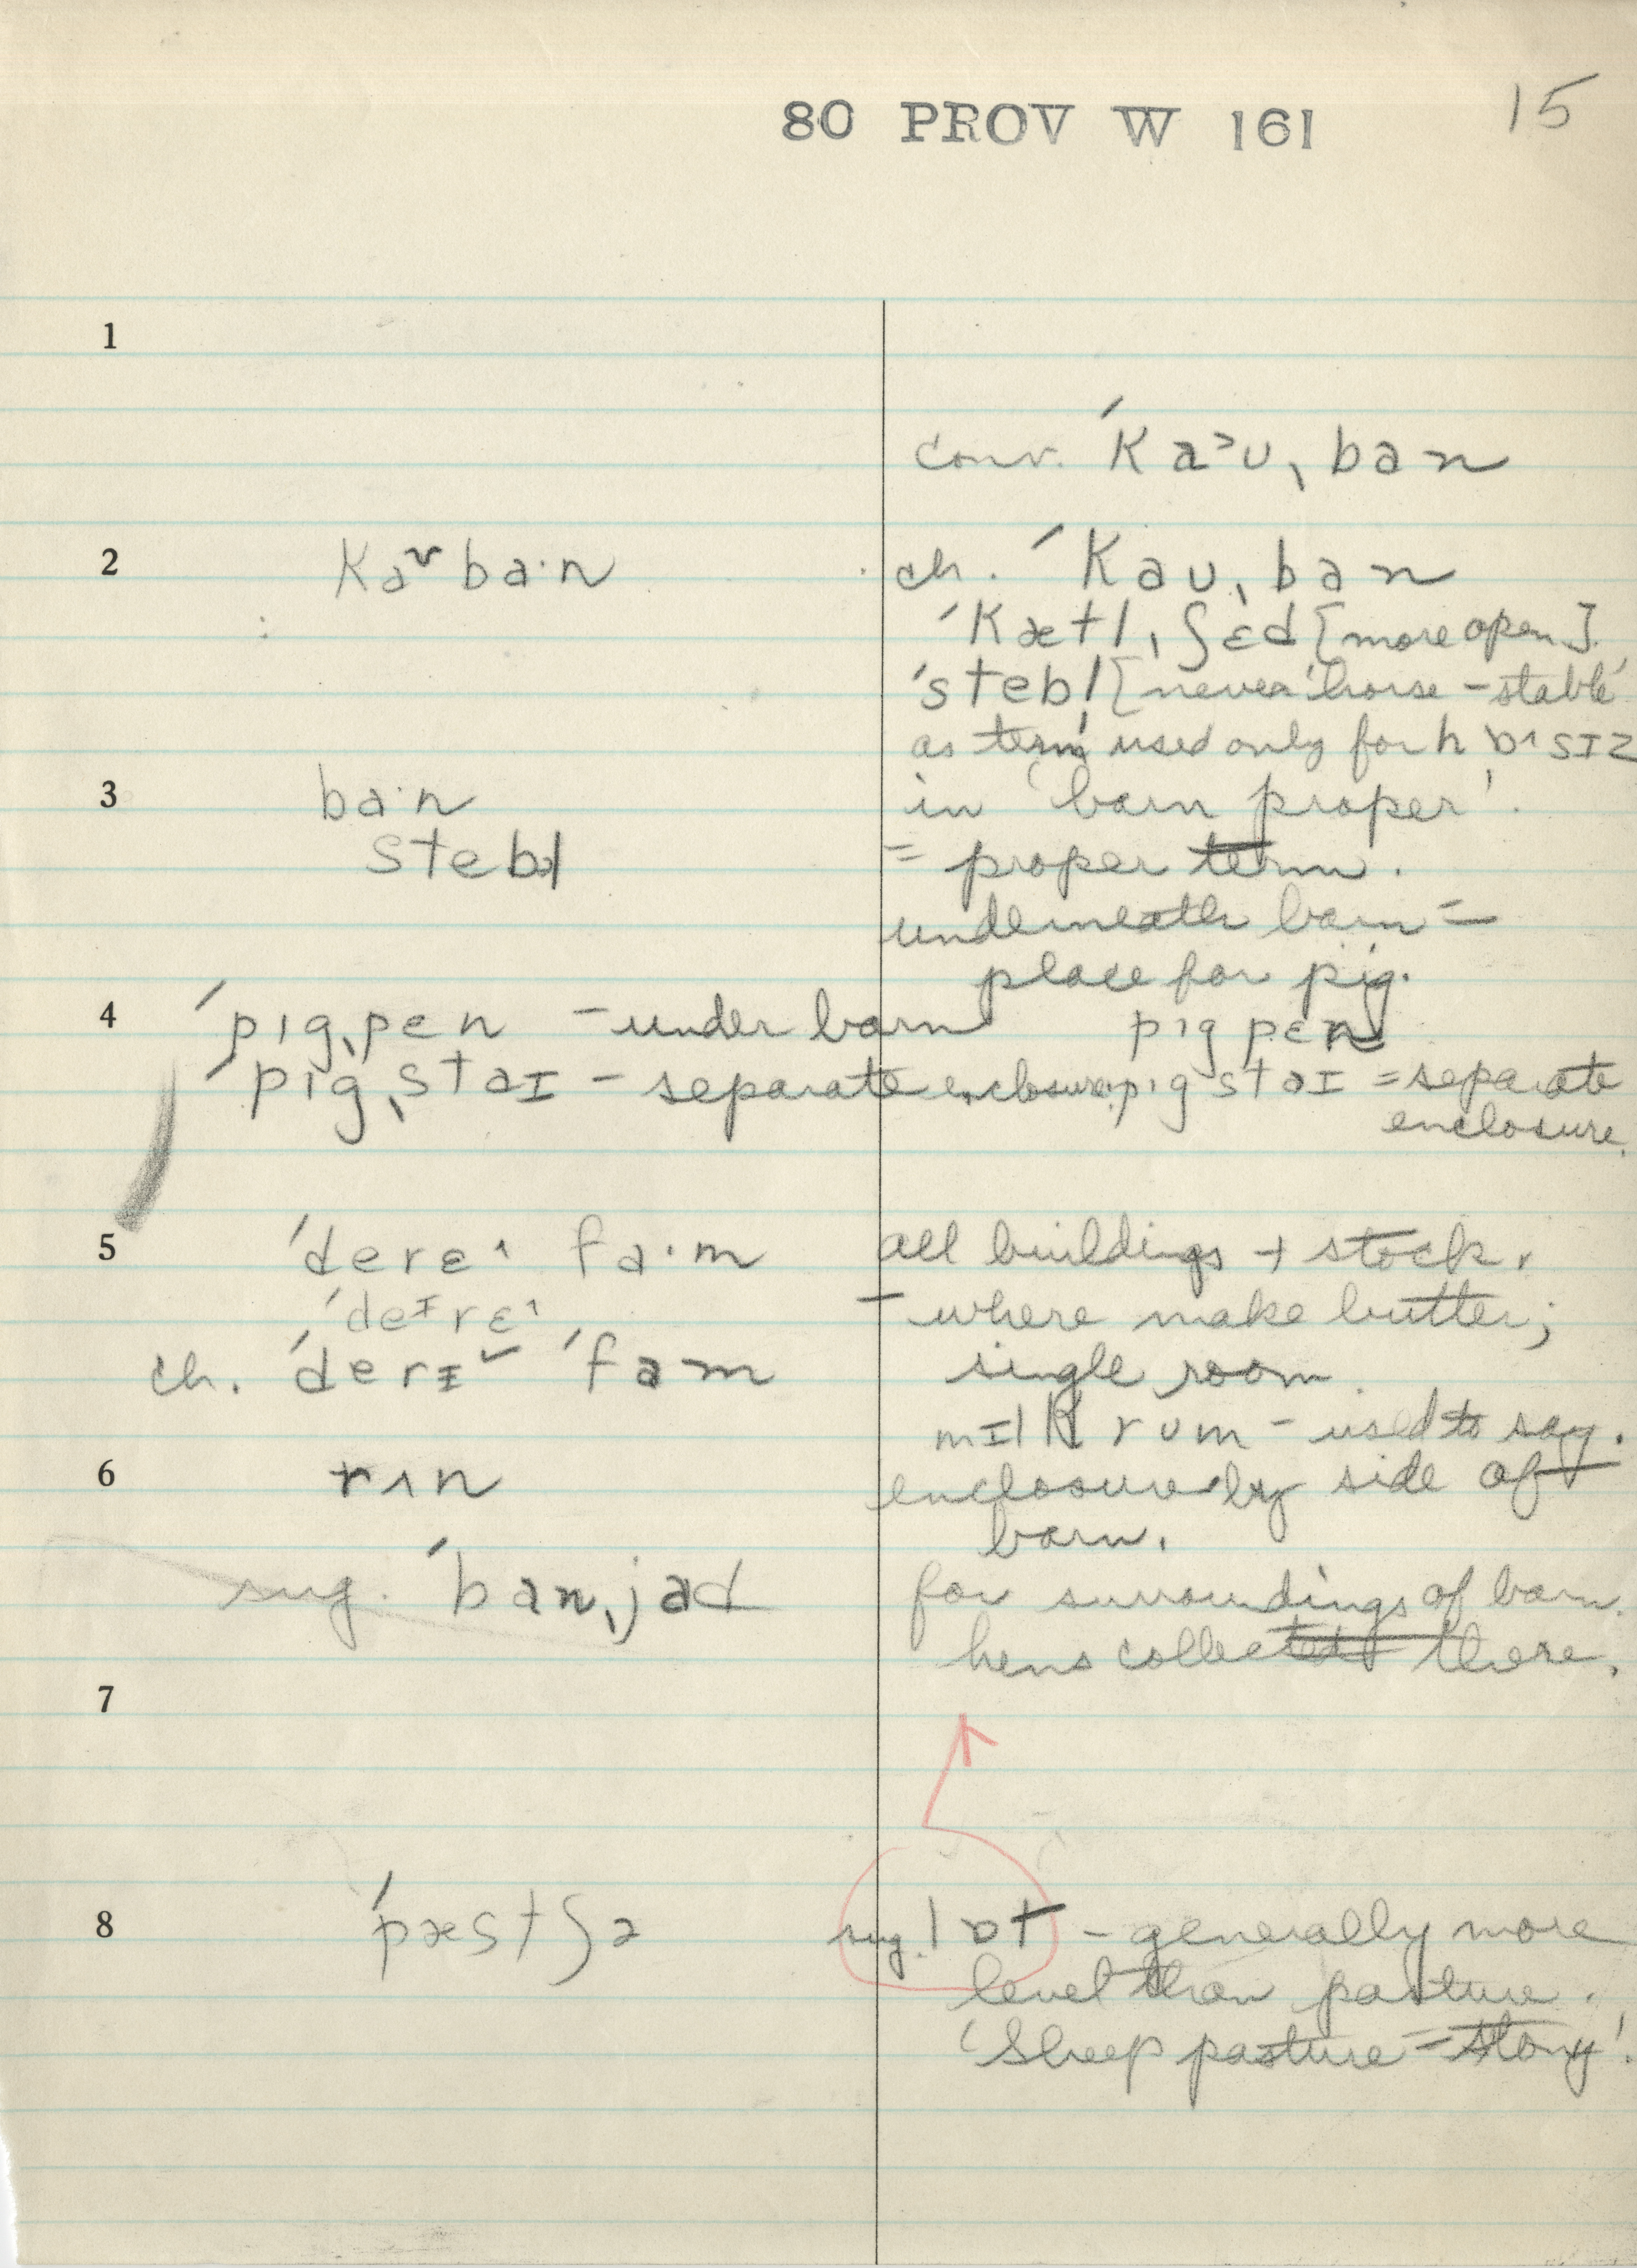 80 PROV W 161
15
1
conv. ˈka˃ʊˌban
2 kaᵛba·n ch. ˈkaʊˌban
ˈkætlˌʃɛd [more open].
ˈstebl̩ [never 'horse-stable'
as term used only for hɒ˄sɪz
3 ba·n in 'barn proper'.
stebl = proper term.
underneath barn =
place for pig.
4 ˈpɪgˌpen – under barn pɪgpɛn
ˈpɪgˌstaɪ – separate enclosure; pɪgstaɪ = separate
enclosure.
5 ˈderɛ˄ fa·m all buildings + stock.
ˈdeᶦrɛ˄ – where make butter;
ch. ˈderɪ˅ ˈfam single room.
mɪlkrum – used to say.
6 rʌn enclosure by side of
barn.
sug. ˈbanˌjad for surroundings of barn.
hens collected there.
7
8 ˈpæstʃə sug. lɒt – generally more
level than pasture.
'Sheep pasture = stony'.